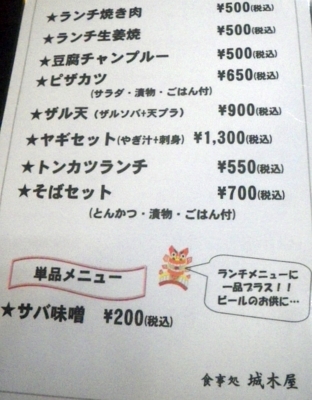 ★ランチ焼き肉 ¥500(税込)
★ランチ生姜焼 ¥500(税込)
★豆腐チャンプルー ¥500(税込)
★ピザカツ ¥650(税込)
(サラダ・漬物・ごはん付)
★ザル天(ザルソバ+天プラ) ¥900(税込)
★ヤギセット(やぎ汁+刺身) ¥1,300(税込)
★トンカツランチ ¥550(税込)
★そばセット ¥700(税込)
(とんかつ・漬物・ごはん付)
単品メニュー
ランチメニューに
一品プラス!!
ビールのお供に…
★サバ味噌 ¥200(税込)
食事処 城木屋